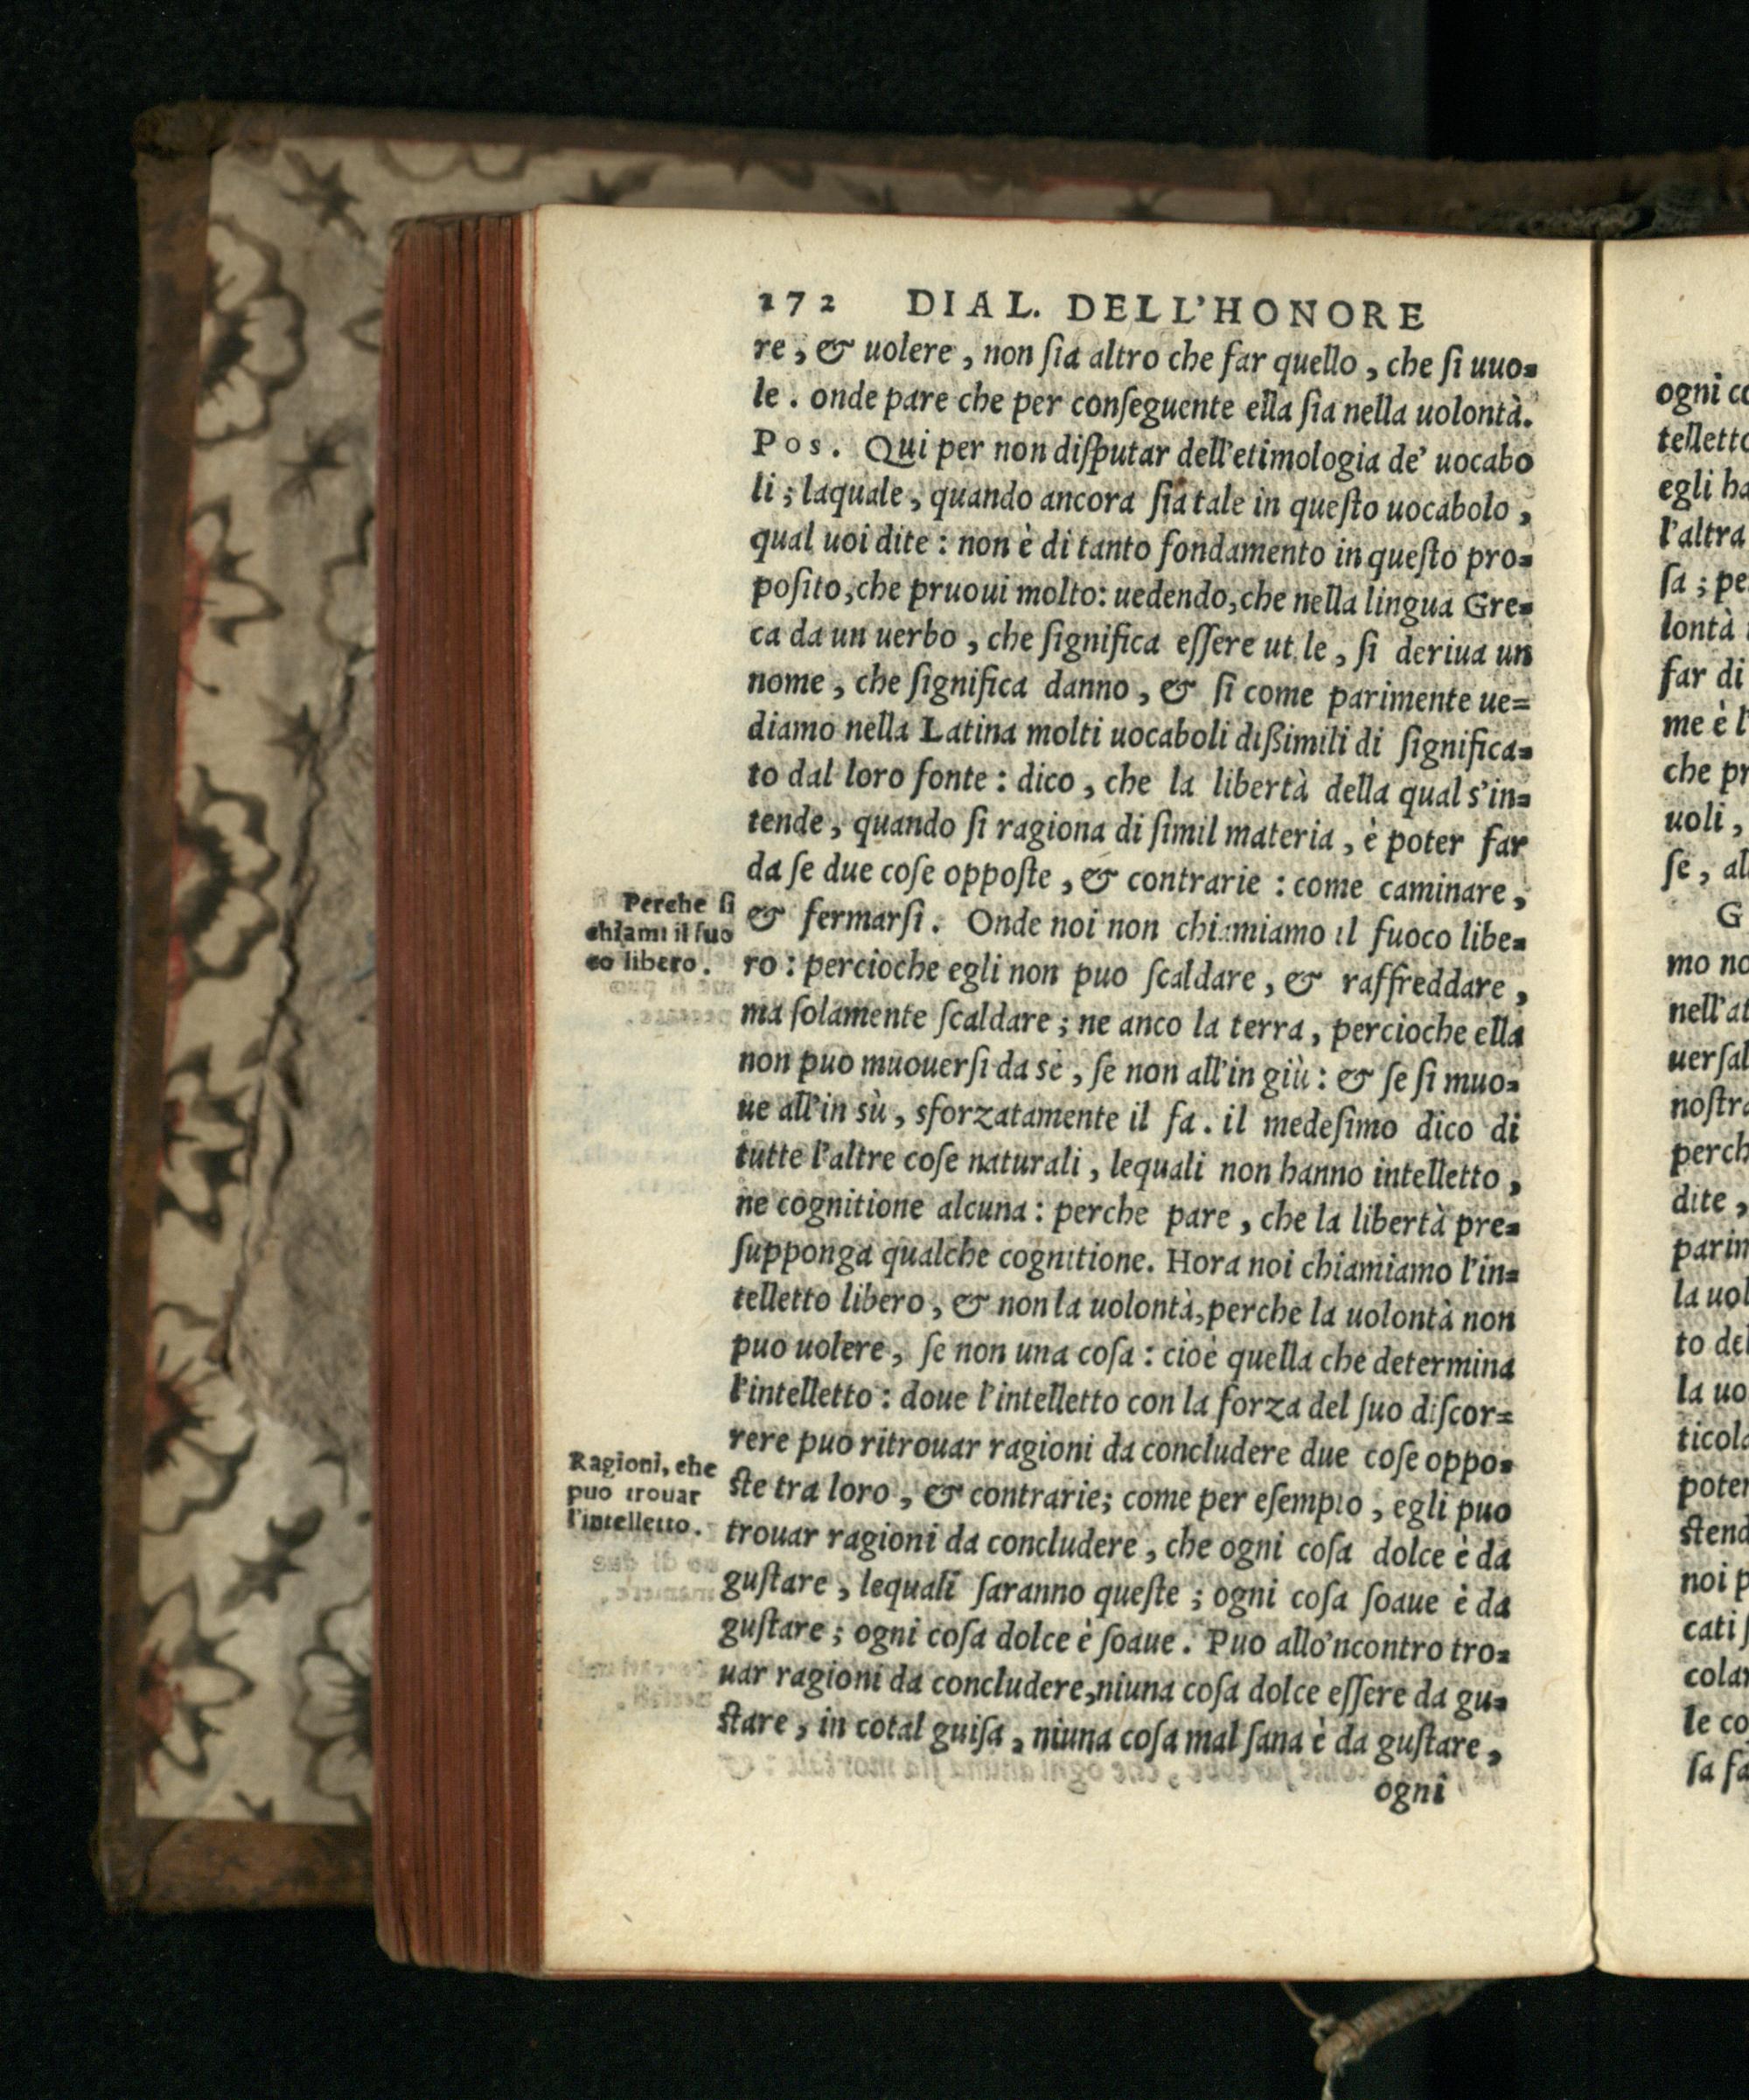 172 DIAL. DELL'HONORE
re, & uolere, non ſia altro che far quello, che ſi uuo=
le. onde pare che per conſeguente ella ſia nella uolontà.
Pos. Qui per non diſputar dell'etimologia de' uocabo
li; laquale, quando ancora ſia tale in queſto uocabolo,
qual uoi dite: non è di tanto fondamento in queſto pro=
poſito, che pruoui molto: uedendo, che nella lingua Gre=
ca da un uerbo, che ſignifica eſſere ut le, ſi deriua un
nome, che ſignifica danno, & ſi come parimente ue=
diamo nella Latina molti uocaboli dißimili di ſignifica=
to dal loro fonte: dico, che la libertà della qual s'in=
tende, quando ſi ragiona di ſimil materia, è poter far
da ſe due coſe oppoſte, & contrarie: come caminare,
& fermarſi. Onde noi non chiamiamo il fuoco libe=
ro: percioche egli non puo ſcaldare, & raffreddare,
ma ſolamente ſcaldare; ne anco la terra, percioche ella
non puo muouerſi da se, ſe non all'in giù: & ſe ſi muo=
ue all'in sù, sforzatamente il fa. il medeſimo dico di
tutte l'altre coſe naturali, lequali non hanno intelletto,
ne cognitione alcuna: perche pare, che la libertà pre=
ſupponga qualche cognitione. Hora noi chiamiamo l'in=
telletto libero, & non la uolontà, perche la uolontà non
puo uolere, ſe non una coſa: cioè quella che determina
l'intelletto: doue l'intelletto con la forza del ſuo diſcor=
rere puo ritrouar ragioni da concludere due coſe oppo=
ſte tra loro, & contrarie; come per eſempio, egli puo
trouar ragioni da concludere, che ogni coſa dolce è da
guſtare, lequali ſaranno queſte; ogni coſa ſoaue è da
guſtare; ogni coſa dolce è ſoaue. Puo allo'ncontro tro=
uar ragioni da concludere, niuna coſa dolce eſſere da gu=
ſtare, in cotal guiſa, niuna coſa mal ſana è da guſtare,
ogni
Perche ſi
chiami il fuo
co libero.
Ragioni, che
puo trouar
l'intelletto.
ogni
egli
l'altra
ſa; pe
lontà
far di
me è
che
uoli,
ſe,
G
mo
perch
dite,
to
noi
cati
le
ſa